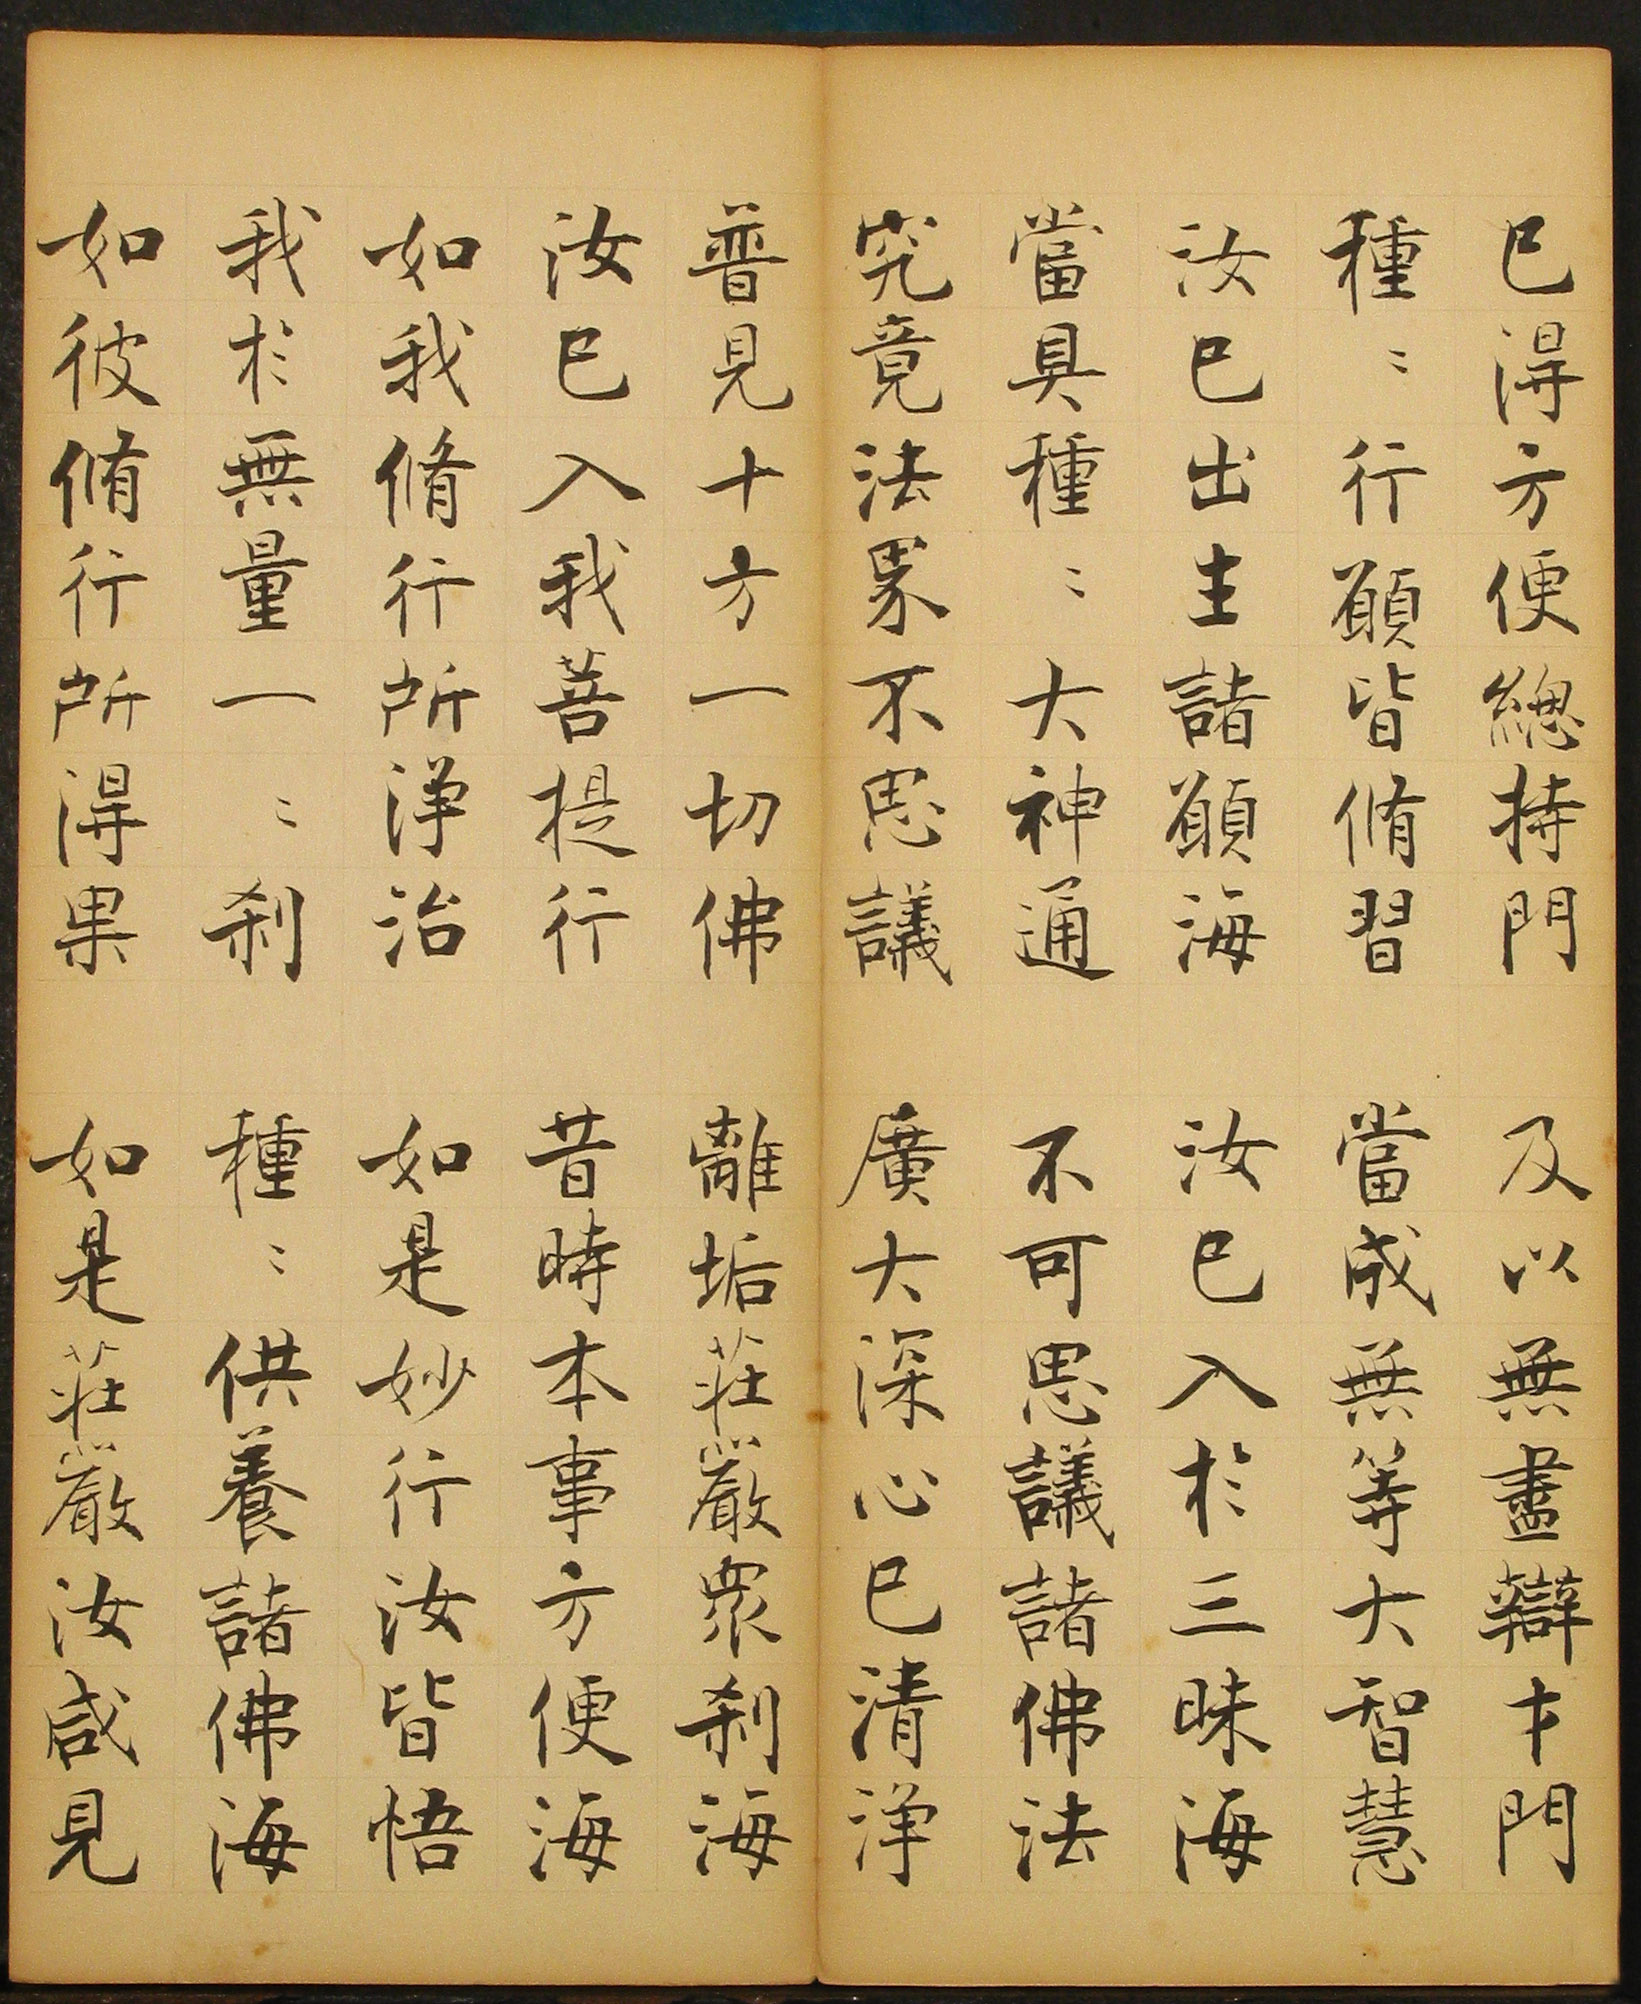 已得方便總持門　及以無盡辯才門
種〻行願皆脩習　當成無等大智慧
汝已出生諸願海　汝已入於三昧海
當具種〻大神通　不可思議諸佛法
究竟法界不思議　廣大深心已清淨
普見十方一切佛　離垢莊嚴眾刹海
汝已入我菩提行　昔時本事方便海
如我脩行所淨治　如是妙行汝皆悟
我於無量一〻刹　種〻供養諸佛海
如彼脩行所得果　如是莊嚴汝咸見